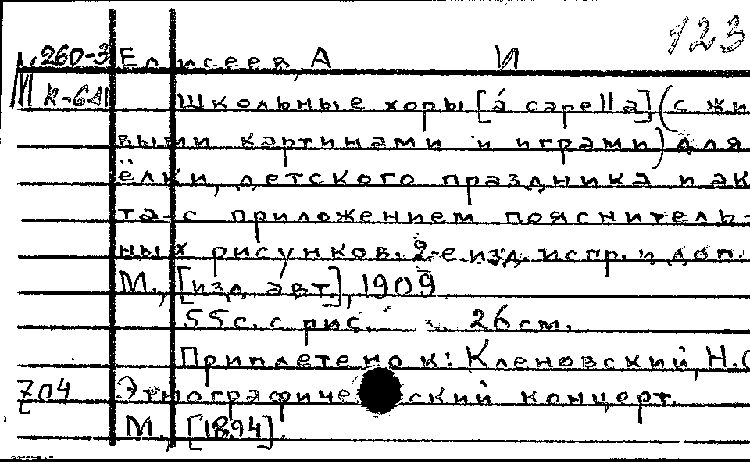 123
260-3 Елисеев, А И
К-641 Школьные хоры [á capella] (с жи
выми картинами и играми) для
ёлки, детского праздника и ак
та с приложением пояснитель-
ных рисунков. 2-е изд. испр. и доп.
М., [изд. авт.], 1909.
55 с. с рис. 26 см.
Приплетено к: Кленовский, Н.С
704 Этнографический концерт.
М., [1894].